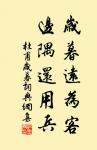 歲暮遠為客
邊隅還用兵
杜甫歲暮詞典網集